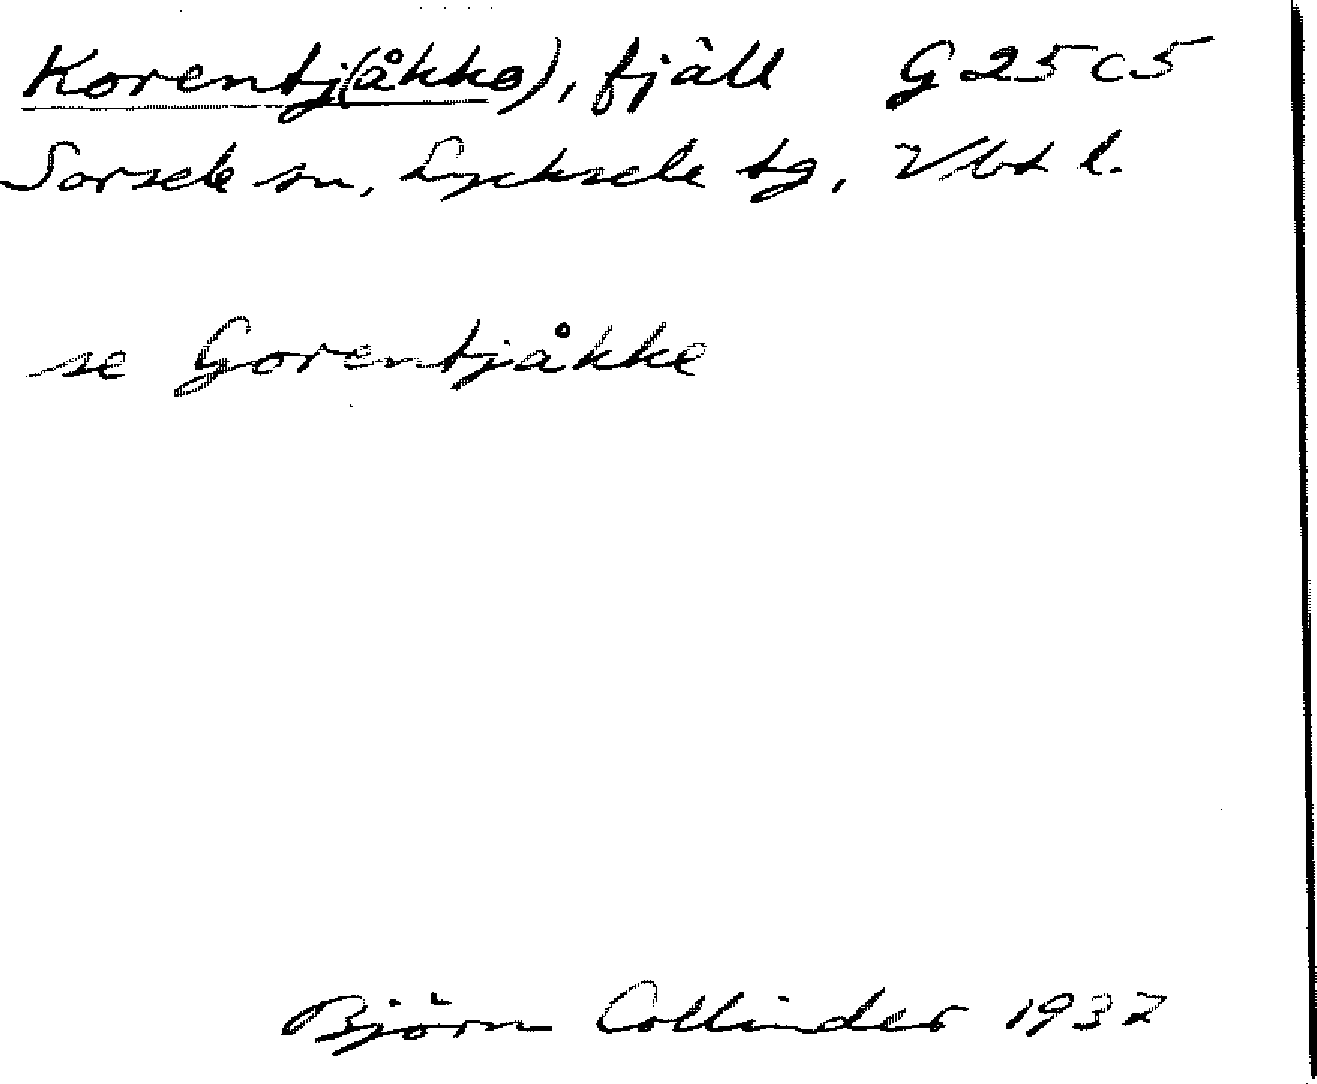 Korentj(åkko), fjäll G 25 C 5
Sorsele sn, Lycksele tg, Vbt l.
se Gorentjåkke
Björn Collinder 1937